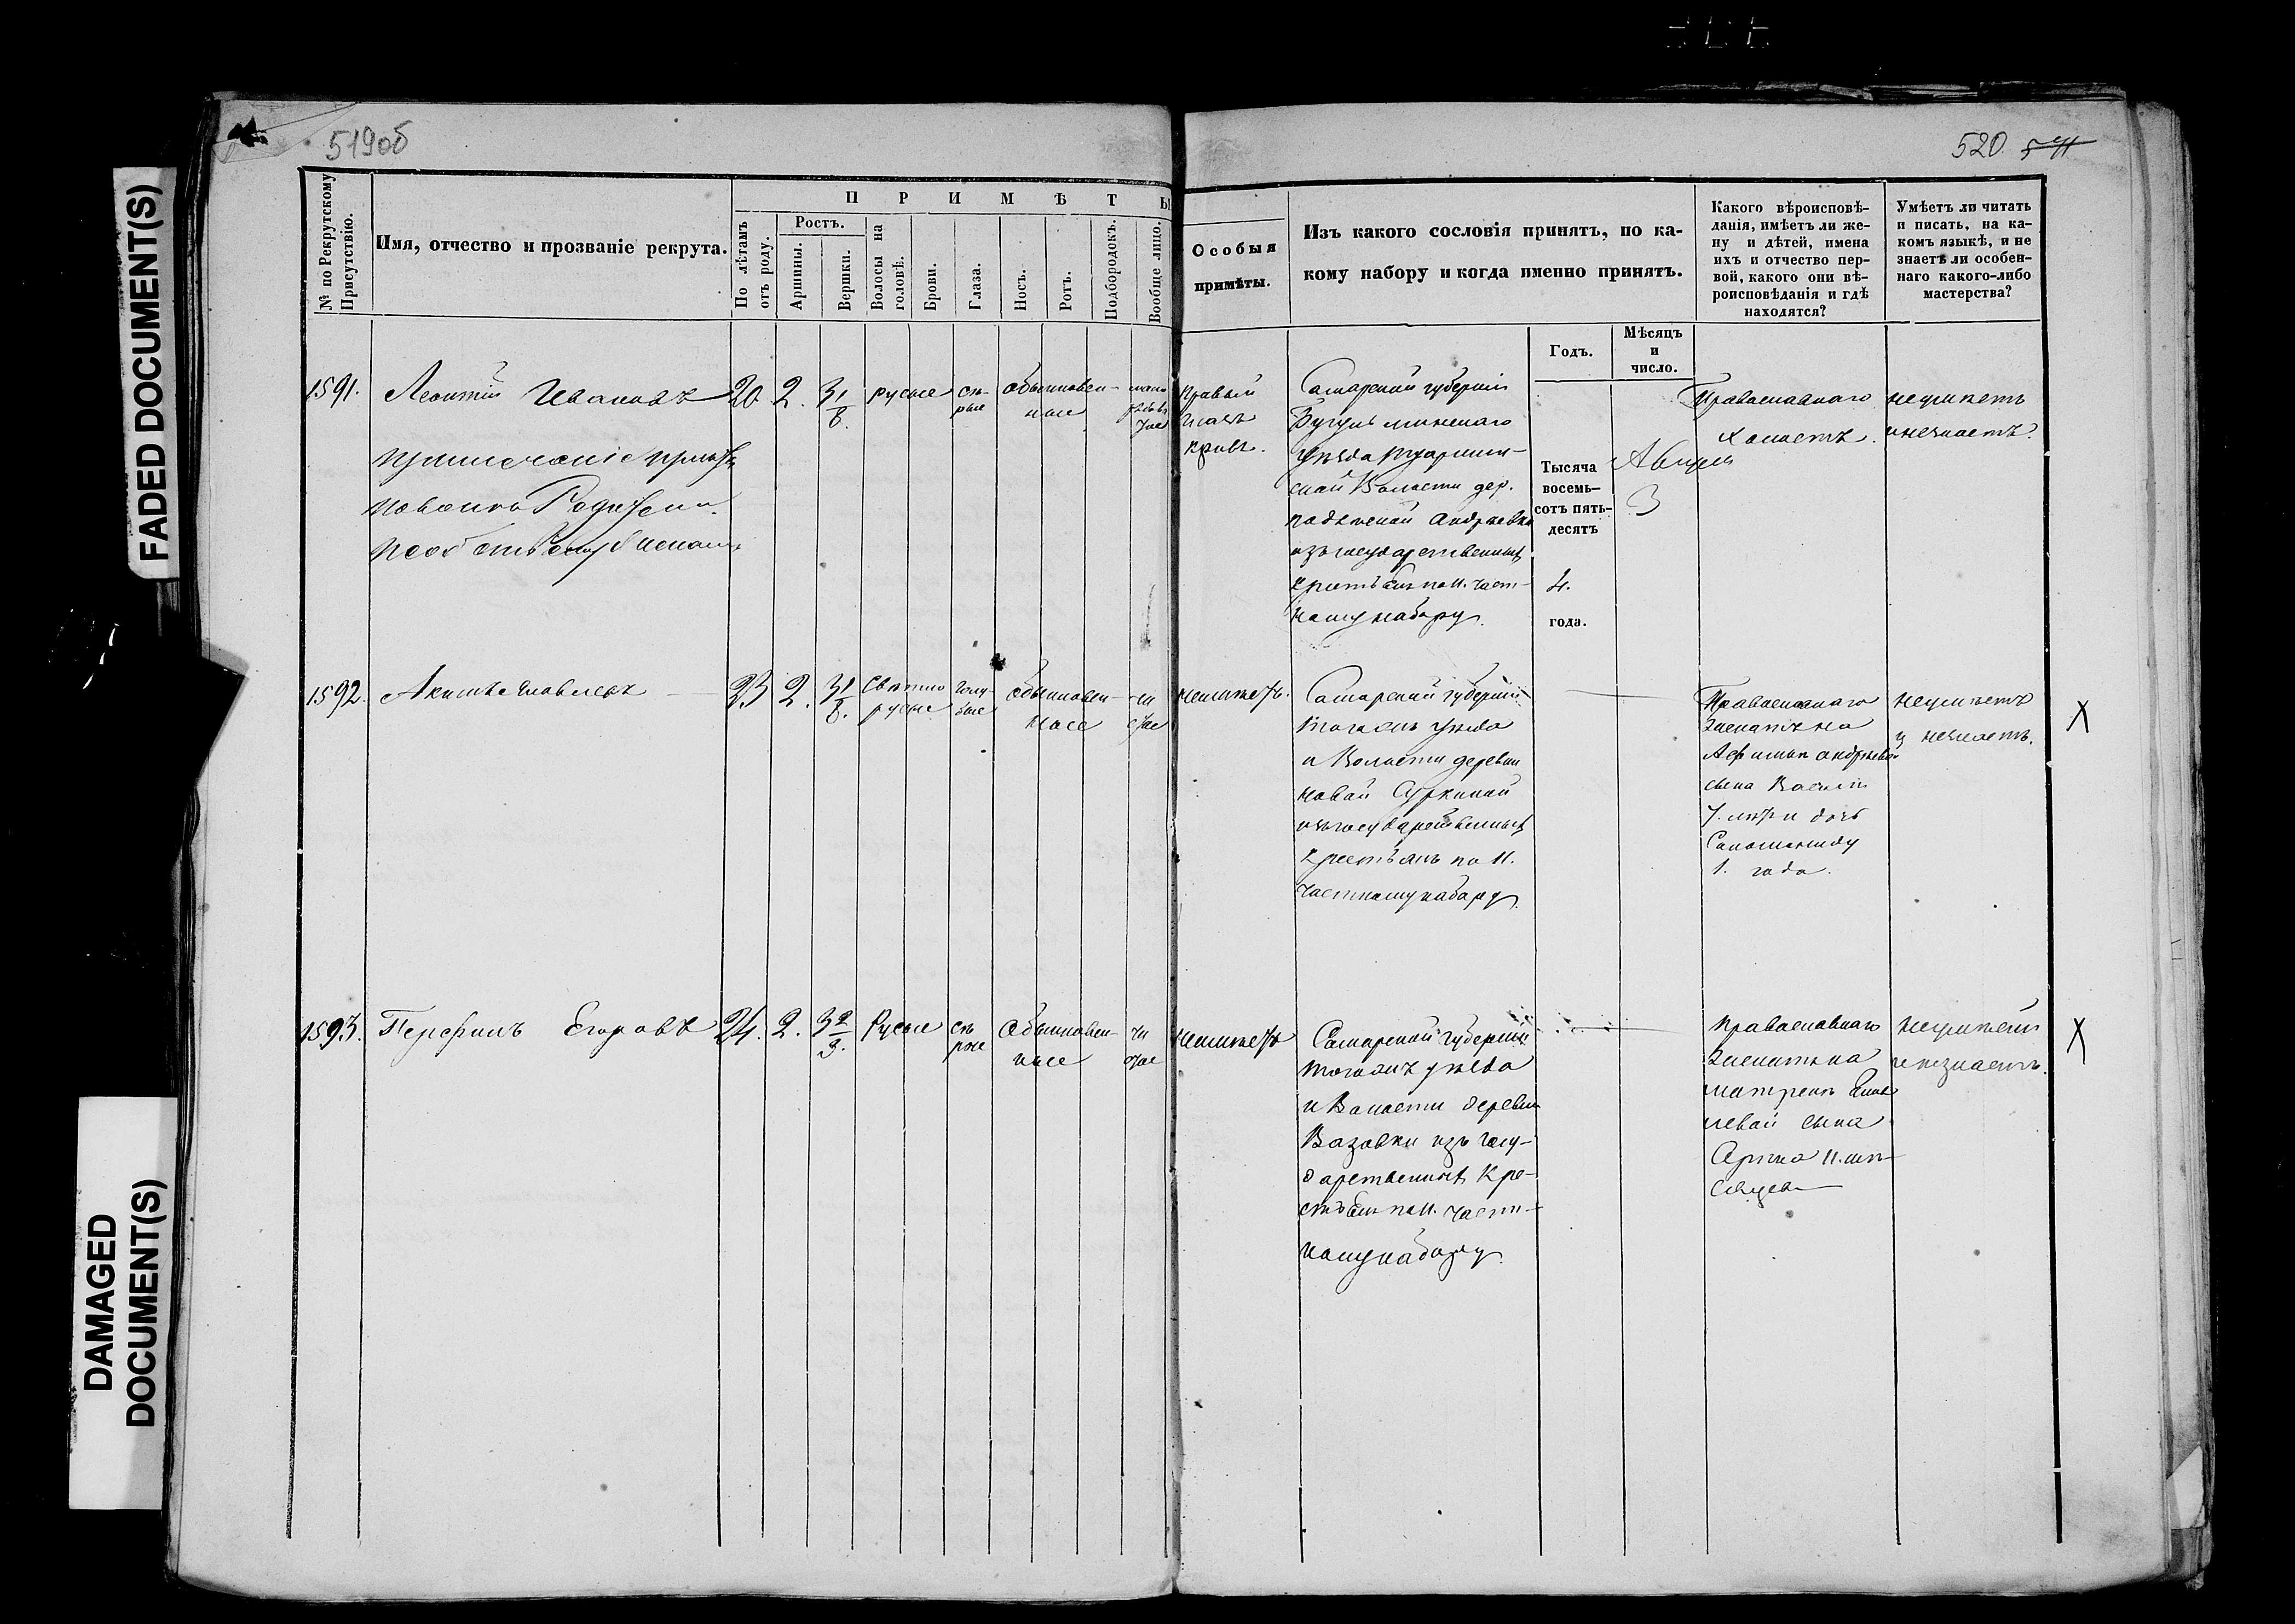 FADED DOCUMENT(S)
DAMAGED
DOCUMENT(S)
519об
520.
№ по Рекрутскому
Присутствію.
Имя, отчество и прозваніе рекрута.
П Р И М Ѣ Т Ы
По лѣтамъ
отъ роду.
Ростъ.
Аршины.
Вершки.
Волосы на
головѣ.
Брови.
Глаза.
Носъ.
Ротъ.
Подбородокъ.
Вообще лицо.
Особыя
примѣты.
Изъ какого сословія принятъ, по ка-
кому набору и когда именно принятъ.
Годъ.
Мѣсяцъ
и
число.
Какого вѣроисповѣ-
данія, имѣетъ ли же-
ну и дѣтей, имена
ихъ и отчество пер-
вой, какого они вѣ-
роисповѣданія и гдѣ
находятся?
Умѣетъ ли читать
и писать, на ка-
комъ языкѣ, и не
знаетъ ли особен-
наго какого-либо
мастерства?
1591.
Леонтій Ивановъ
20
2.
3 1/8.
русые
сѣ-
рые
обыкновен-
ные
правый
глазъ
кривъ.
Самарской губерніи
Бугульминскаго
уѣзда
Волости дер.
изъ государственныхъ
крестьянъ по 11. част-
ному набору.
Тысяча
восемь-
сотъ пять-
десятъ
4.
года.
3
Православнаго
холостъ.
неумѣетъ
и незнаетъ.
1592.
23
2.
3 1/8.
Свѣтло
русые
голу-
бые
обыкновен-
ное
чи
стое
неимѣетъ.
Самарской губерніи
тогожъ уѣзда
и Волости деревни
Новой Суркиной
изъ государственныхъ
крестьянъ по 11.
частному набору.
Православнаго
женатъ на
Афимьи Андрѣевой
сына Василія
7. лѣтъ и дочь
1. года.
неумѣетъ
и незнаетъ.
X
1593.
Перфилъ Егоровъ
24.
2.
3 2/8.
Русые
сѣ
рые
Обыкновен-
ное
чи
стое
неимѣетъ
Самарской губерніи
тогожъ уѣзда
и Волости деревни
Вязовки изъ госу-
дарственныхъ Кре-
стьянъ по 11. част-
ному набору.
православнаго
женатъ на
матренѣ
сына
неумѣетъ
и незнаетъ.
X